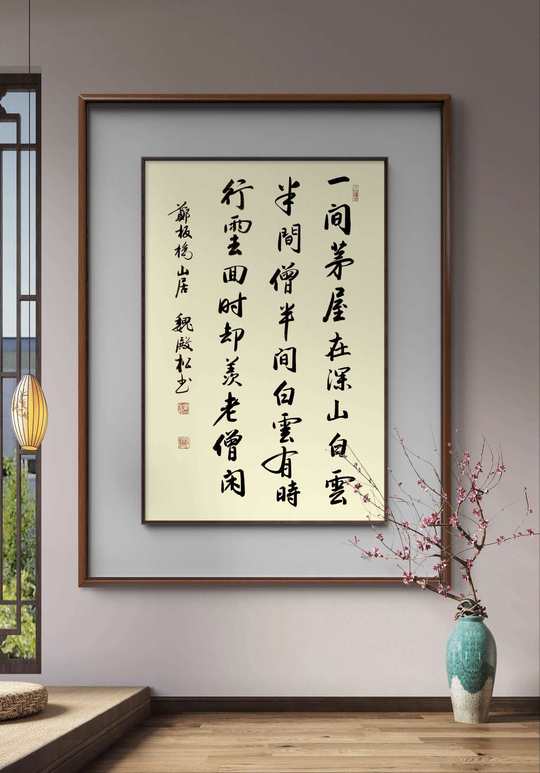 一间茅屋在深山白雲
半間僧半间白雲有時
行雲囬时却羡老僧闲
鄭板橋山居 魏殿松书